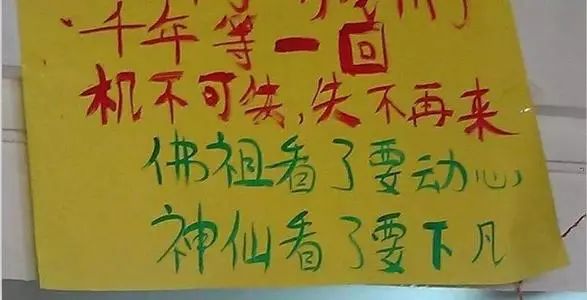 千年等一回
机不可失,失不再来
佛祖看了要动心
神仙看了要下凡